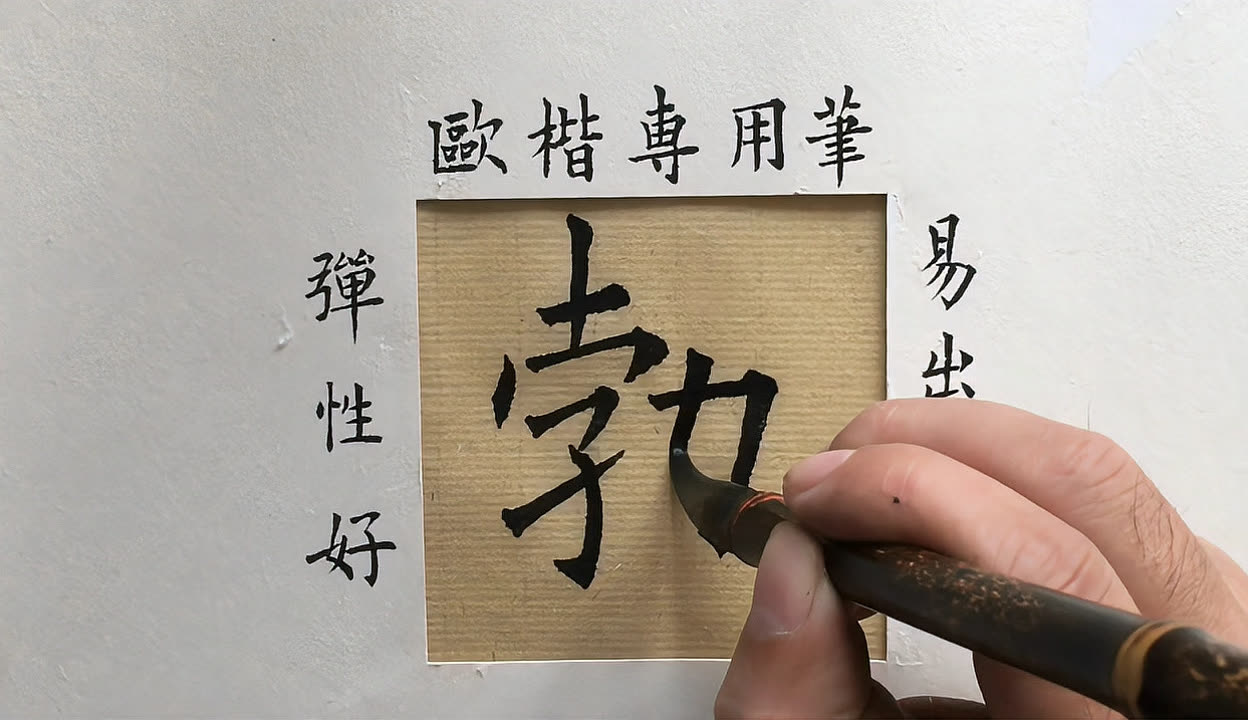 歐楷専用筆
易出
彈性好
勃